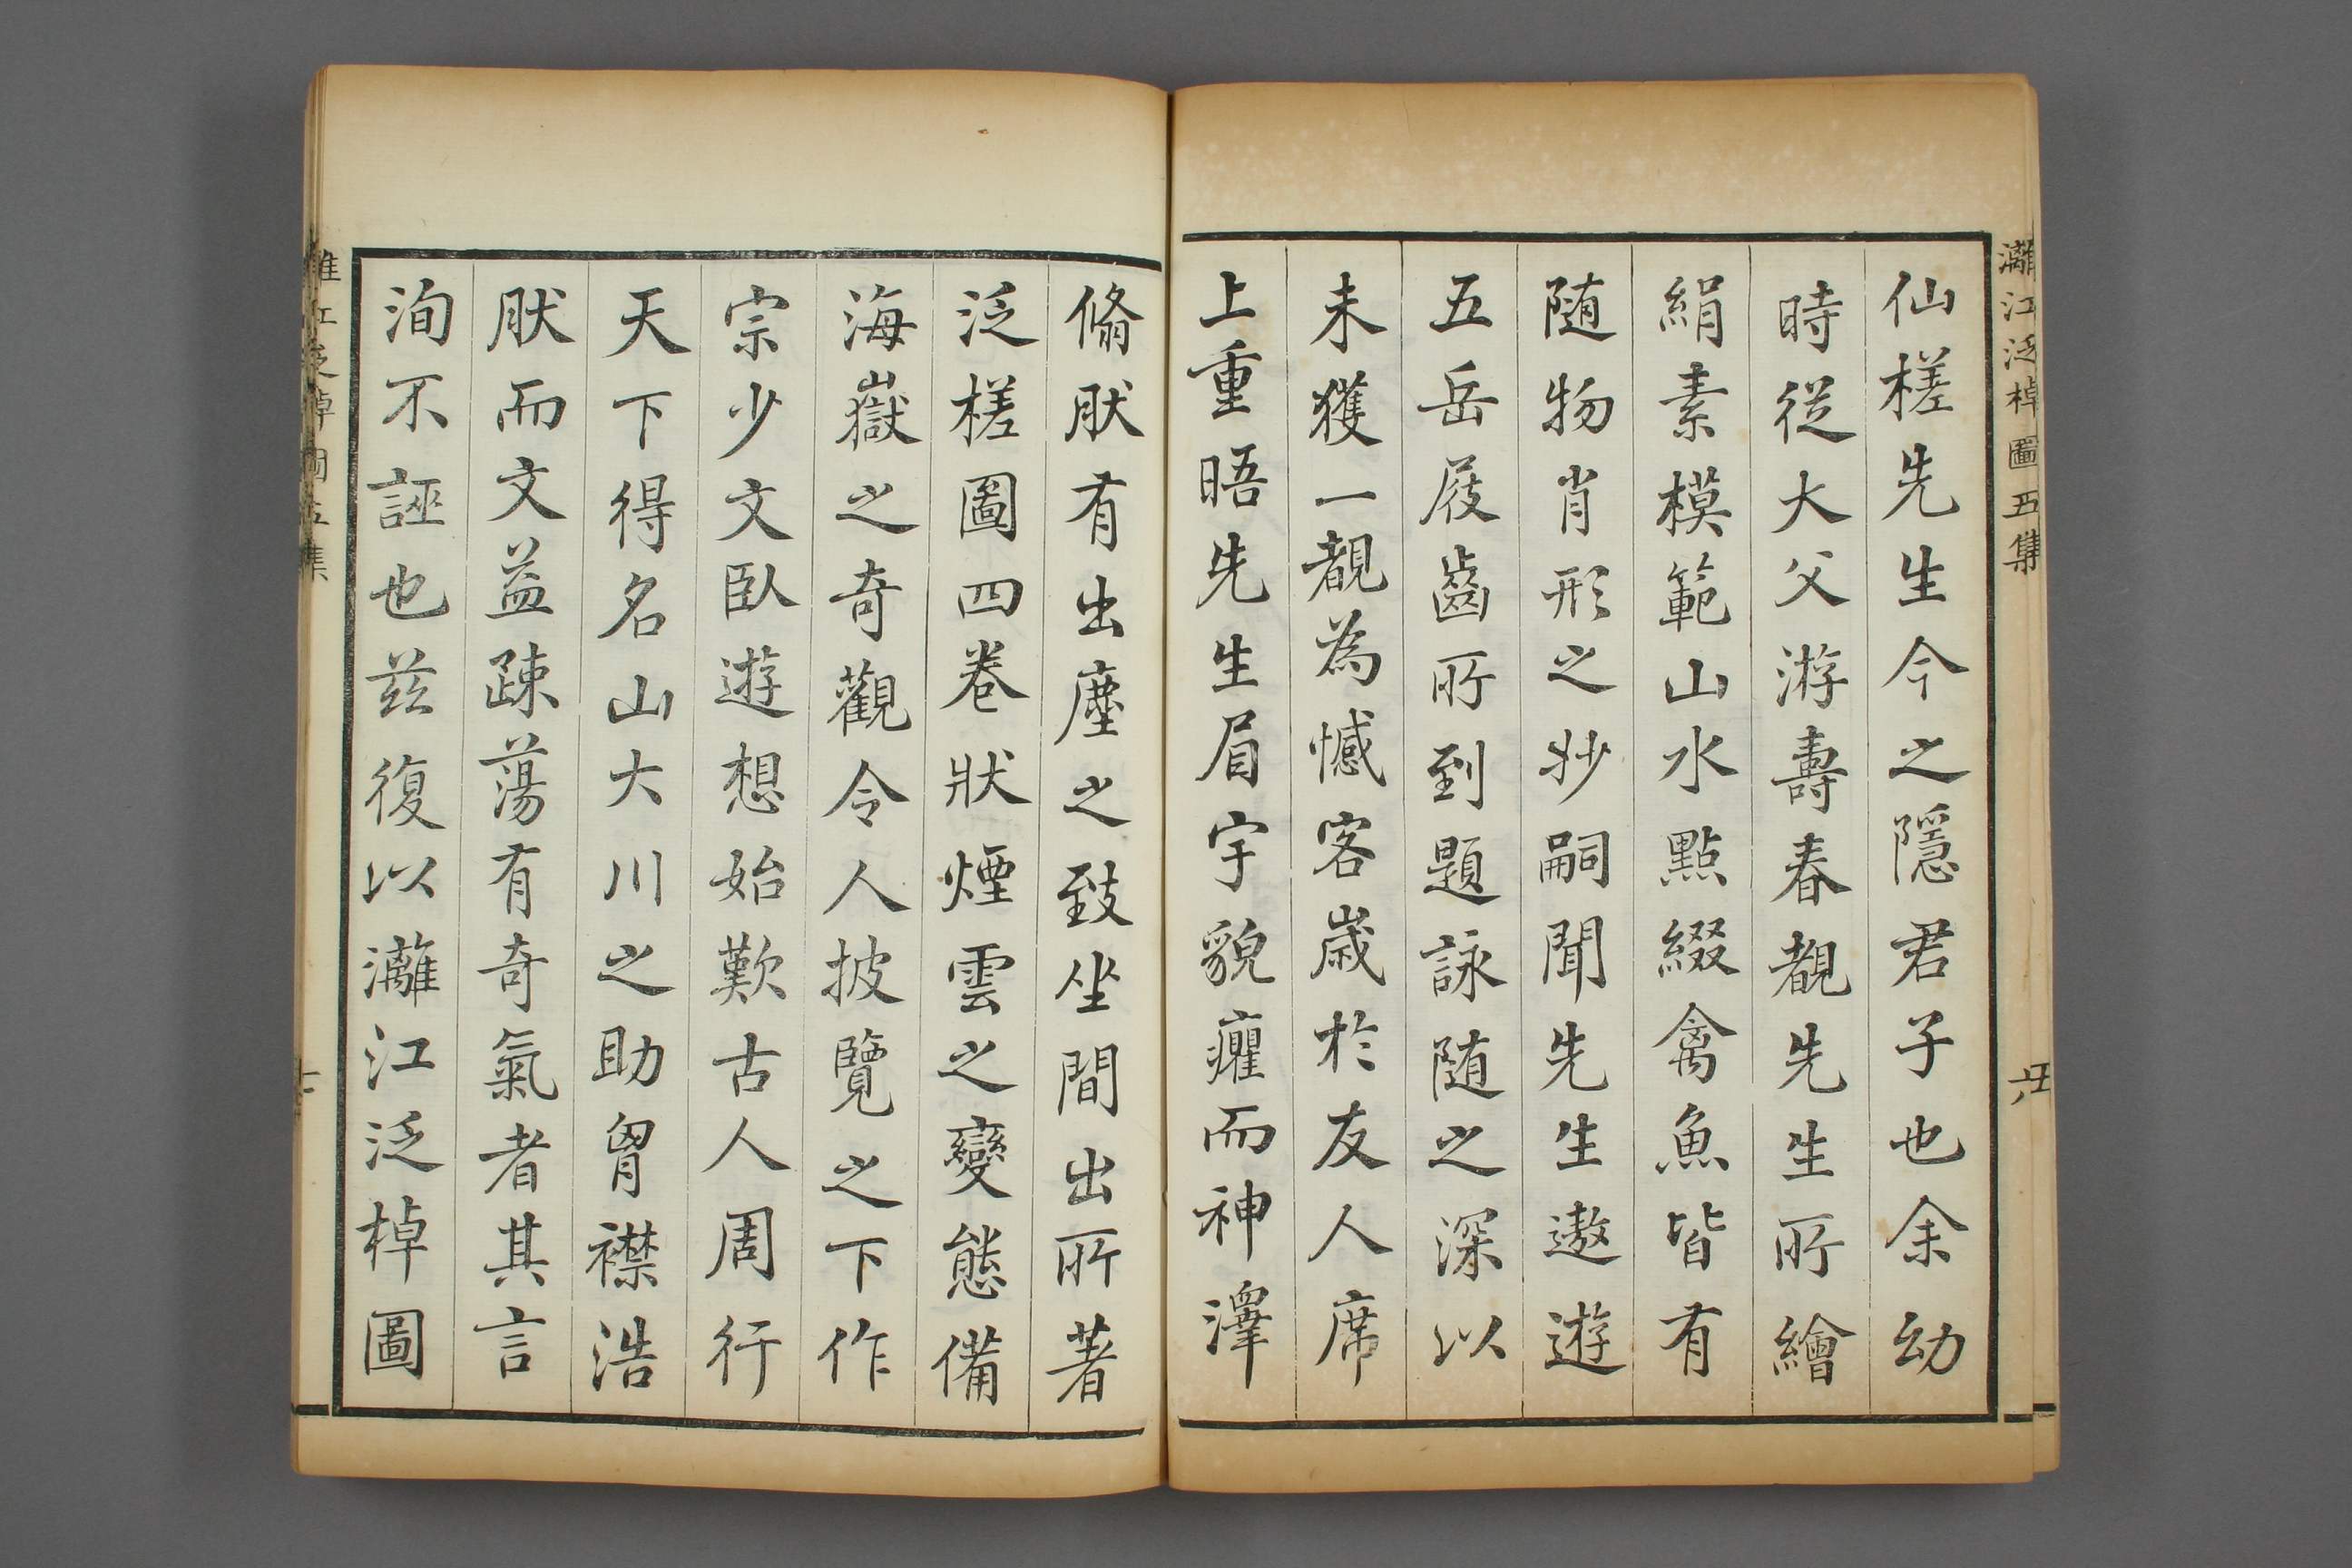 灕江泛棹圖五集
仙槎先生今之隱君子也余幼
時從大父游壽春覩先生所繪
絹素模範山水點綴禽魚皆有
随物肖形之妙嗣聞先生遨遊
五岳屐齒所到題詠随之深以
未獲一覩為憾客嵗於友人席
上重晤先生眉宇貌癯而神澤
翛肰有出塵之致坐間出所著
泛槎圖四卷狀煙雲之變態備
海嶽之奇觀令人披覽之下作
宗少文臥遊想始歎古人周行
天下得名山大川之助胷襟浩
肰而文益疎蕩有奇氣者其言
洵不誣也兹復以灕江泛棹圖